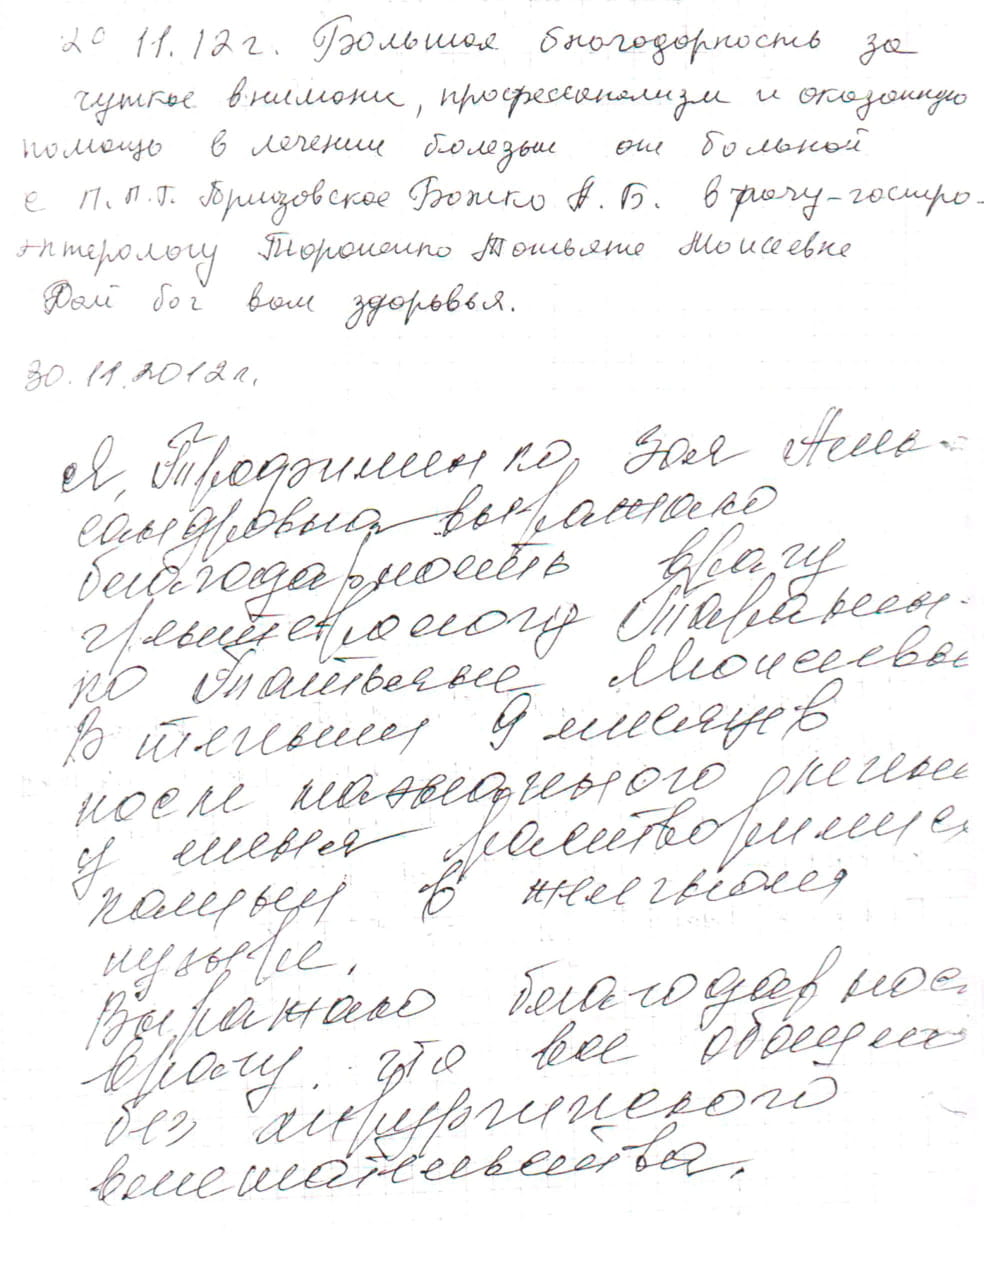 20 11.12г. Большая благодарность за
чуткое внимание, профессионализм и оказанную
помощь в лечении болезни от больной
с п.п.т. Брюзовское Божко А.Б. врачу-гастро-
энтерологу Тороненко Татьяне Моисеевне
Дай бог вам здоровья.
30.11.2012г.
Я, Трофименко, Зоя Алек-
сандровна выражаю
благодарность врачу
Тараненко
Татьяне Моисеевне
В течении 9 месяцев
после назначенного лечения
у меня растворились
камень в желчном
пузыре.
Выражаю благодарнос
врачу. что все обошлось
без хирургического
вмешательства.